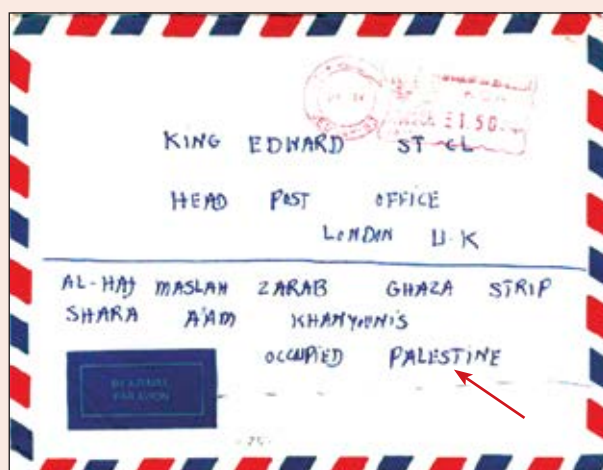 KING EDWARD ST CL
HEAD POST OFFICE
LONDON U.K
AL-HAJ MASLAH ZARAB GHAZA STRIP
SHARA A'AM KHANYOUNIS
OCCUPIED PALESTINE
BY AIR MAIL
PAR AVION